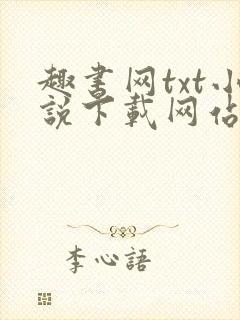 趣書网txt小
説下載网站
李心語